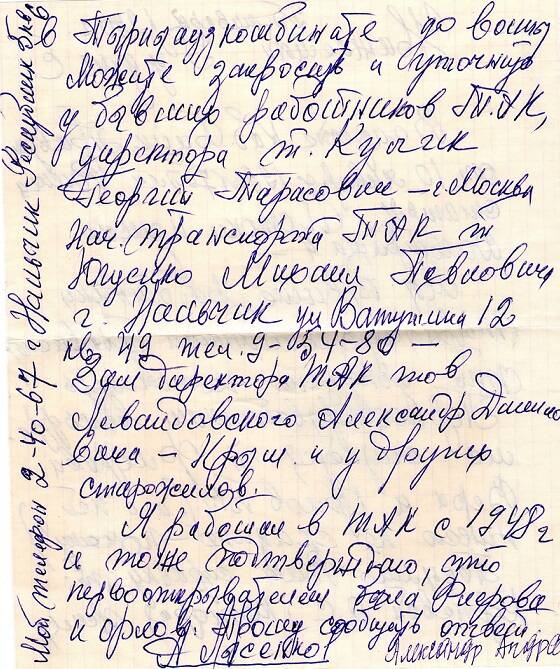 в Тырнаузкомбинате до войны
Можите запросить и уточнить
у бывших работников ТАК,
директора т. Кульгик
Георгий Тарасович – г. Москва
Нач. транспорта ТАК т
Ющенко Михаил Павлович
г. Нальчик ул Ватутина 12
кв 49 тел. 9-54-80 —
Зам директора ТАК тов
Александр
вича – Крым. и у других
старожилов.
Я работаю в ТАК с 1948 г
и тоже подтверждаю, что
первооткрывателем была Флерова
и орлов. Прошу сообщить ответ
Лысенко Александр Андре
Мой телефон 2-40-67 г Нальчик Республик